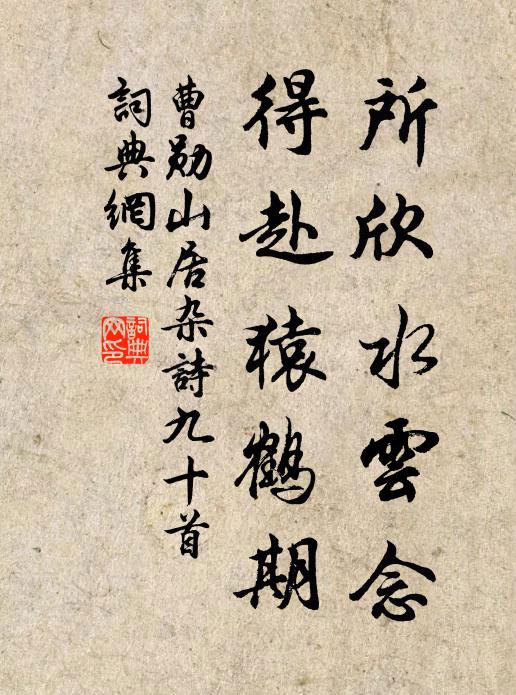 所欣水雲念
得赴猿鶴期
曹勋山居杂詩九十首
詞典網集
詞典网印